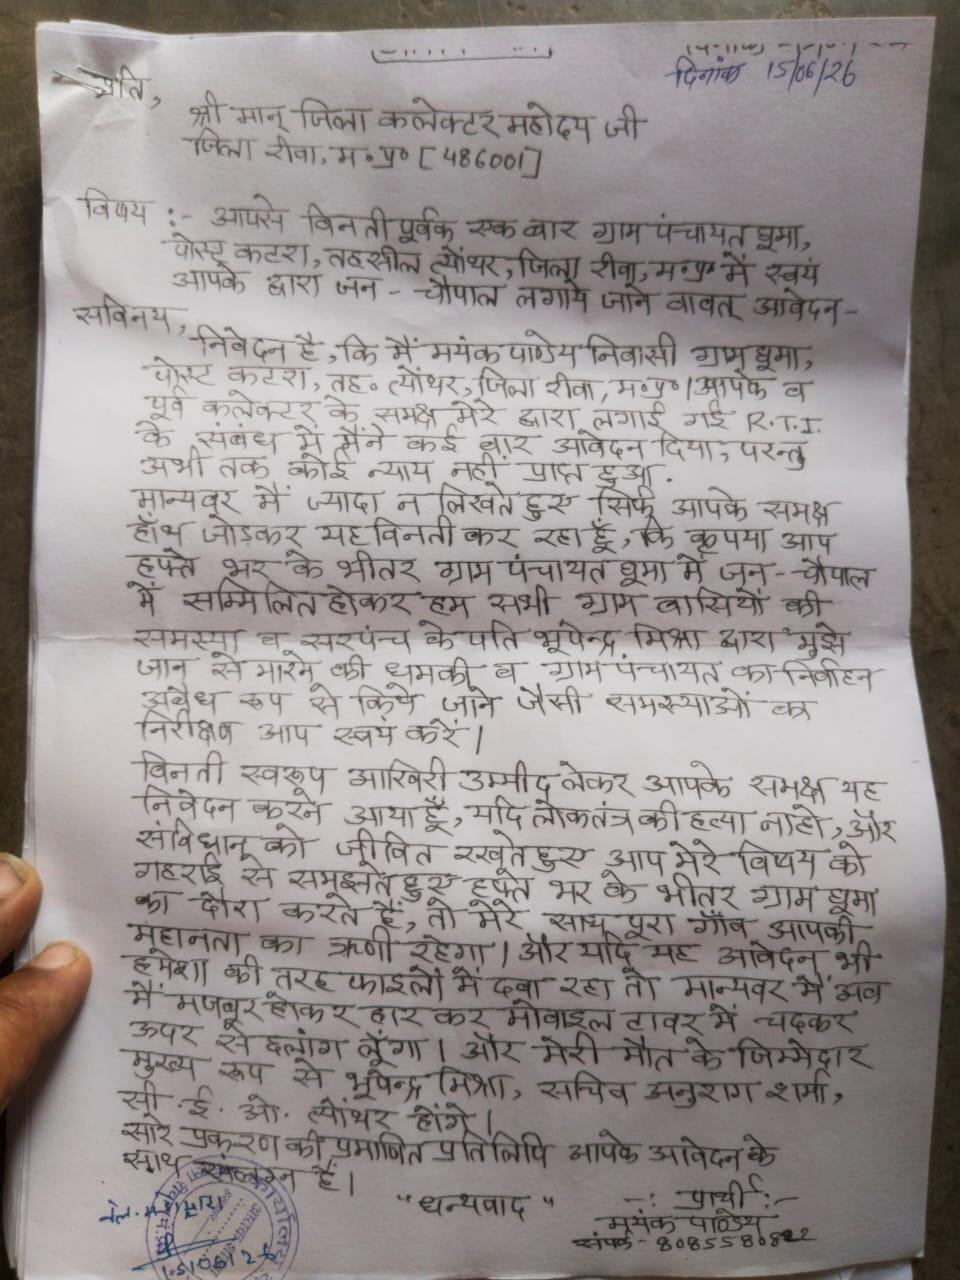 दिनांक 15/06/26
प्रति,
श्री मान् जिला कलेक्टर महोदय जी
जिला रीवा, म॰प्र॰ [486001]
विषय :- आपसे विनती पूर्वक एक बार ग्राम पंचायत घूमा,
पोस्ट कटरा, तहसील त्योंथर, जिला रीवा, म॰प्र॰ में स्वयं
आपके द्वारा जन - चौपाल लगाये जाने वावत् आवेदन -
सविनय,
निवेदन है, कि मैं मयंक पाण्डेय निवासी ग्राम घूमा,
पोस्ट कटरा, तह॰ त्योंथर, जिला रीवा, म॰प्र॰। आपके व
पूर्व कलेक्टर के समक्ष मेरे द्वारा लगाई गई R.T.I.
के संबंध में मैंने कई बार आवेदन दिया, परन्तु
अभी तक कोई न्याय नहीं प्राप्त हुआ.
मान्यवर मैं ज्यादा न लिखते हुए सिर्फ आपके समक्ष
हाँथ जोड़कर यह विनती कर रहा हूँ, कि कृपया आप
हफ्ते भर के भीतर ग्राम पंचायत घूमा में जन - चौपाल
में सम्मिलित होकर हम सभी ग्राम वासियों की
समस्या व सरपंच के पति भूपेन्द्र मिश्रा द्वारा मुझे
जान से मारने की धमकी व ग्राम पंचायत का निर्वाहन
अवैध रूप से किये जाने जैसी समस्याओं का
निरीक्षण आप स्वयं करें।
विनती स्वरूप आखिरी उम्मीद लेकर आपके समक्ष यह
निवेदन करने आया हूँ, यदि लोकतंत्र की हत्या ना हो, और
संविधान को जीवित रखते हुए आप मेरे विषय को
गहराई से समझते हुए हफ्ते भर के भीतर ग्राम घूमा
का दौरा करते हैं, तो मेरे साथ पूरा गाँव आपकी
महानता का ऋणी रहेगा। और यदि यह आवेदन भी
हमेशा की तरह फाइलों में दबा रहा तो मान्यवर मैं अब
मैं मजबूर होकर हार कर मोबाइल टावर में चढ़कर
ऊपर से छलांग लूँगा। और मेरी मौत के जिम्मेदार
मुख्य रूप से भूपेन्द्र मिश्रा, सचिव अनुराग शर्मा,
सी. ई. ओ. त्योंथर होंगे।
सारे प्रकरण की प्रमाणित प्रतिलिपि आपके आवेदन के
साथ संलग्न हैं।
"धन्यवाद"
-: प्रार्थी :-
मयंक पाण्डेय
संपर्क - 8085580822